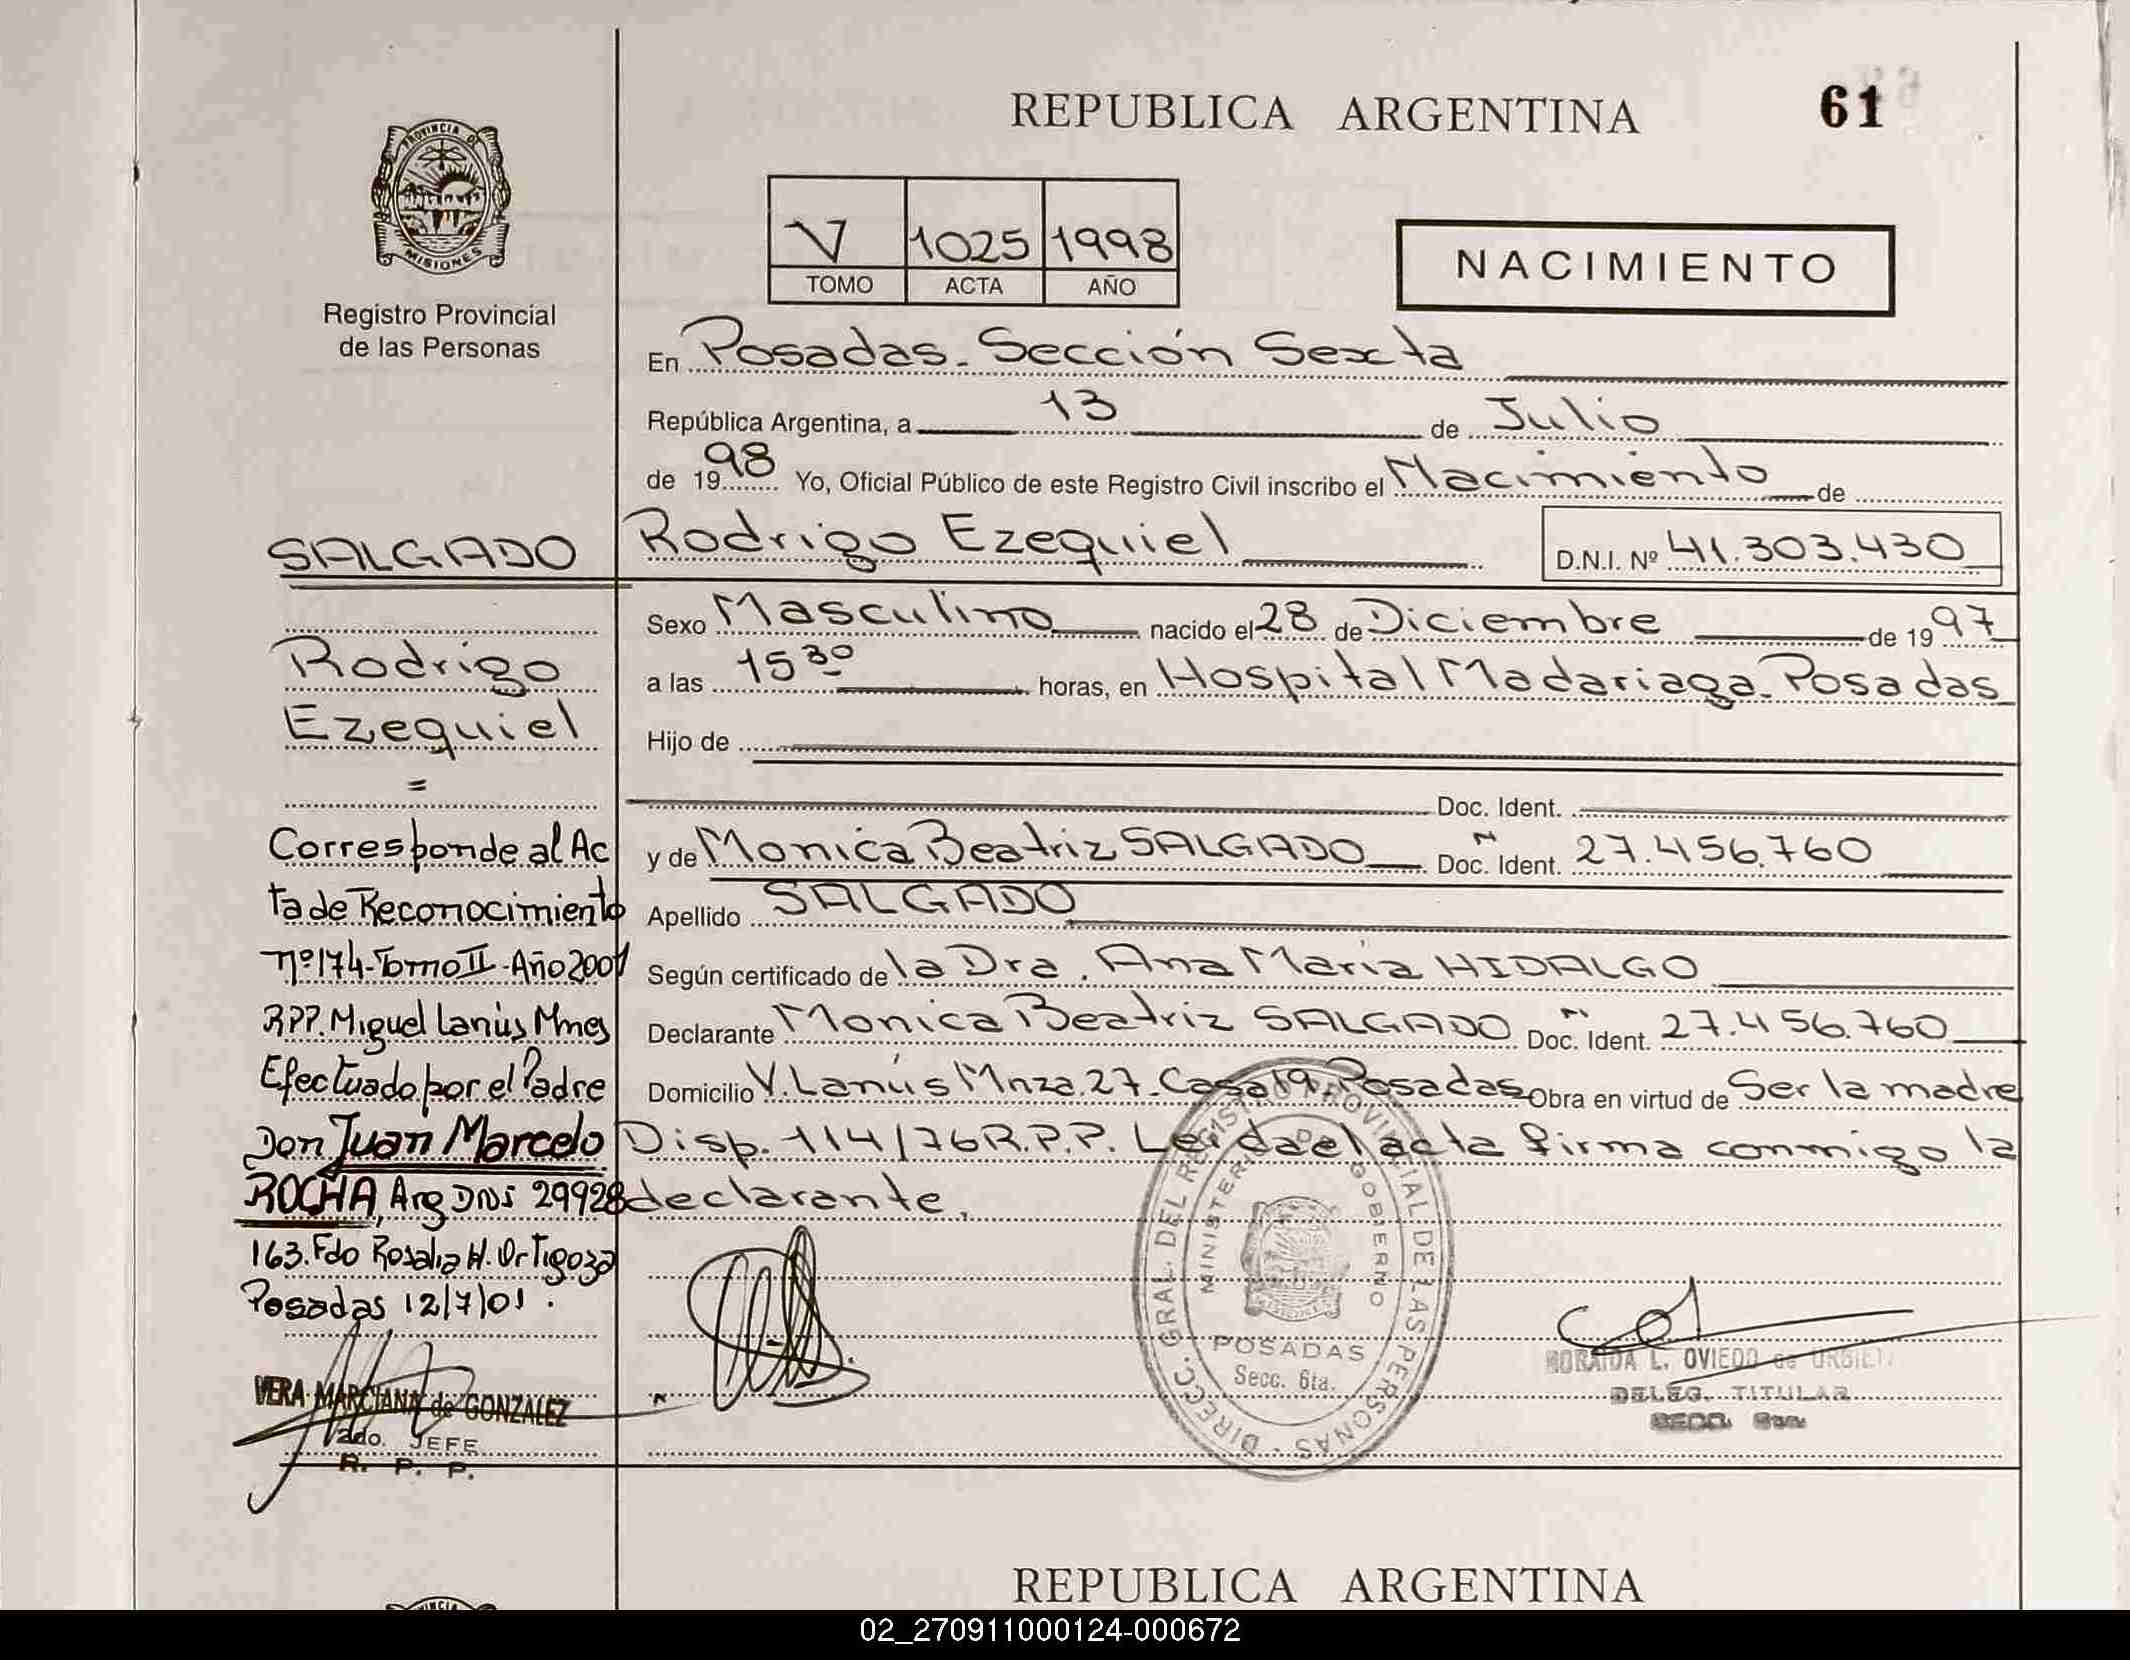 REPUBLICA ARGENTINA
61
PROVINCIA DE
MISIONES
Registro Provincial
de las Personas
V 1025 1998
TOMO ACTA AÑO
NACIMIENTO
En Posadas. Sección Sexta
República Argentina, a 13 de Julio
de 1998 Yo, Oficial Público de este Registro Civil inscribo el Nacimiento de
SALGADO
Rodrigo Ezequiel D.N.I. Nº 41.303.430
Sexo Masculino nacido el 28 de Diciembre de 1997
a las 15 30 horas, en Hospital Madariaga. Posadas
Hijo de
Doc. Ident.
y de Monica Beatriz SALGADO Doc. Ident. N 27.456.760
Apellido SALGADO
Según certificado de la Dra. Ana Maria HIDALGO
Declarante Monica Beatriz SALGADO Doc. Ident. N 27.456.760
Domicilio V. Lanús Mnza. 27. Casa 19. Posadas Obra en virtud de Ser la madre
Disp. 114/76 R.P.P. Leída el acta firma conmigo la
declarante.
Rodrigo
Ezequiel
=
Corresponde al Ac
ta de Reconocimiento
Nº 174-Tomo II-Año 2001
RPP. Miguel Lanús Mnes
Efectuado por el Padre
Don Juan Marcelo
ROCHA, Arg DNI 29928
163. Fdo Rosalia H. Ortigoza
Posadas 12/7/01.
VERA MARCIANA de GONZALEZ
2do. JEFE
R. P. P.
DIRECC. GRAL. DEL REGISTRO PROVINCIAL DE LAS PERSONAS
MINISTERIO DE GOBIERNO
POSADAS
Secc. 6ta.
MORAIDA L. OVIEDO de
DELEG. TITULAR
SECC. 6ta.
REPUBLICA ARGENTINA
02_270911000124-000672